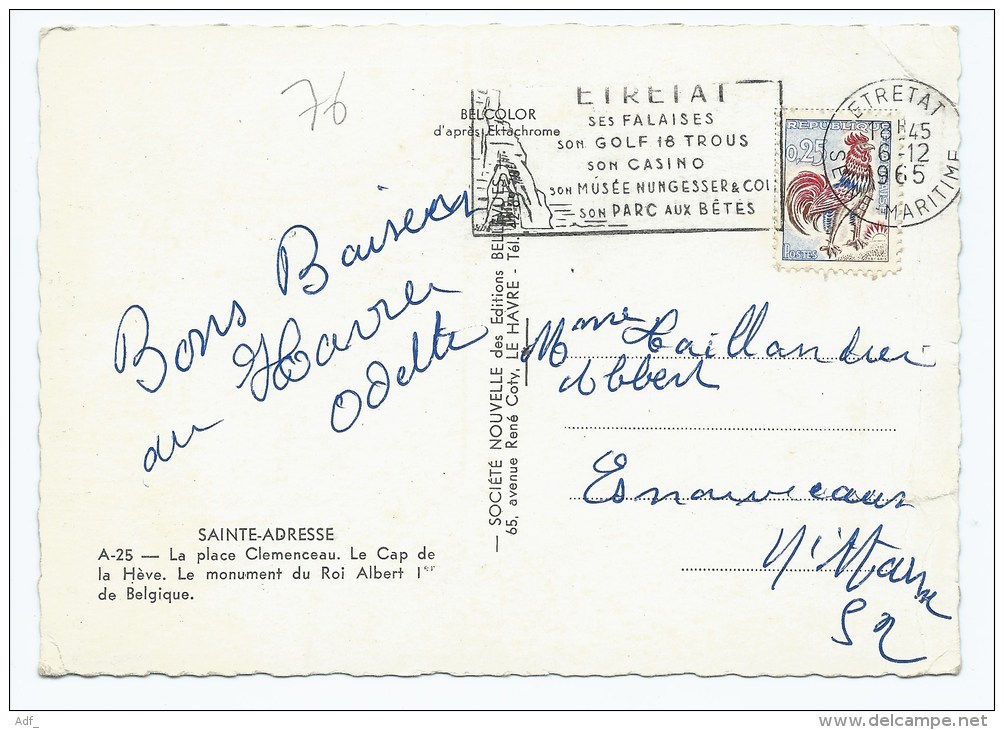 76
BELCOLOR
d'après Ektachrome
ETRETAT
SES FALAISES
SON GOLF 18 TROUS
SON CASINO
SON MUSÉE NUNGESSER & COLI
SON PARC AUX BÊTES
ETRETAT
18H45
6-12
1965
SEINE MARITIME
REPUBLIQUE
0,25
POSTES
Bons Baisers
du Havre
Odette
Mme Haillandrei
Albert
Esnouveaux
Hte Marne
52
SAINTE-ADRESSE
A-25 — La place Clemenceau. Le Cap de
la Hève. Le monument du Roi Albert Ier
de Belgique.
— SOCIÉTÉ NOUVELLE des Editions
65, avenue René Coty, LE HAVRE - Tél.
Adf_
delcampe.net